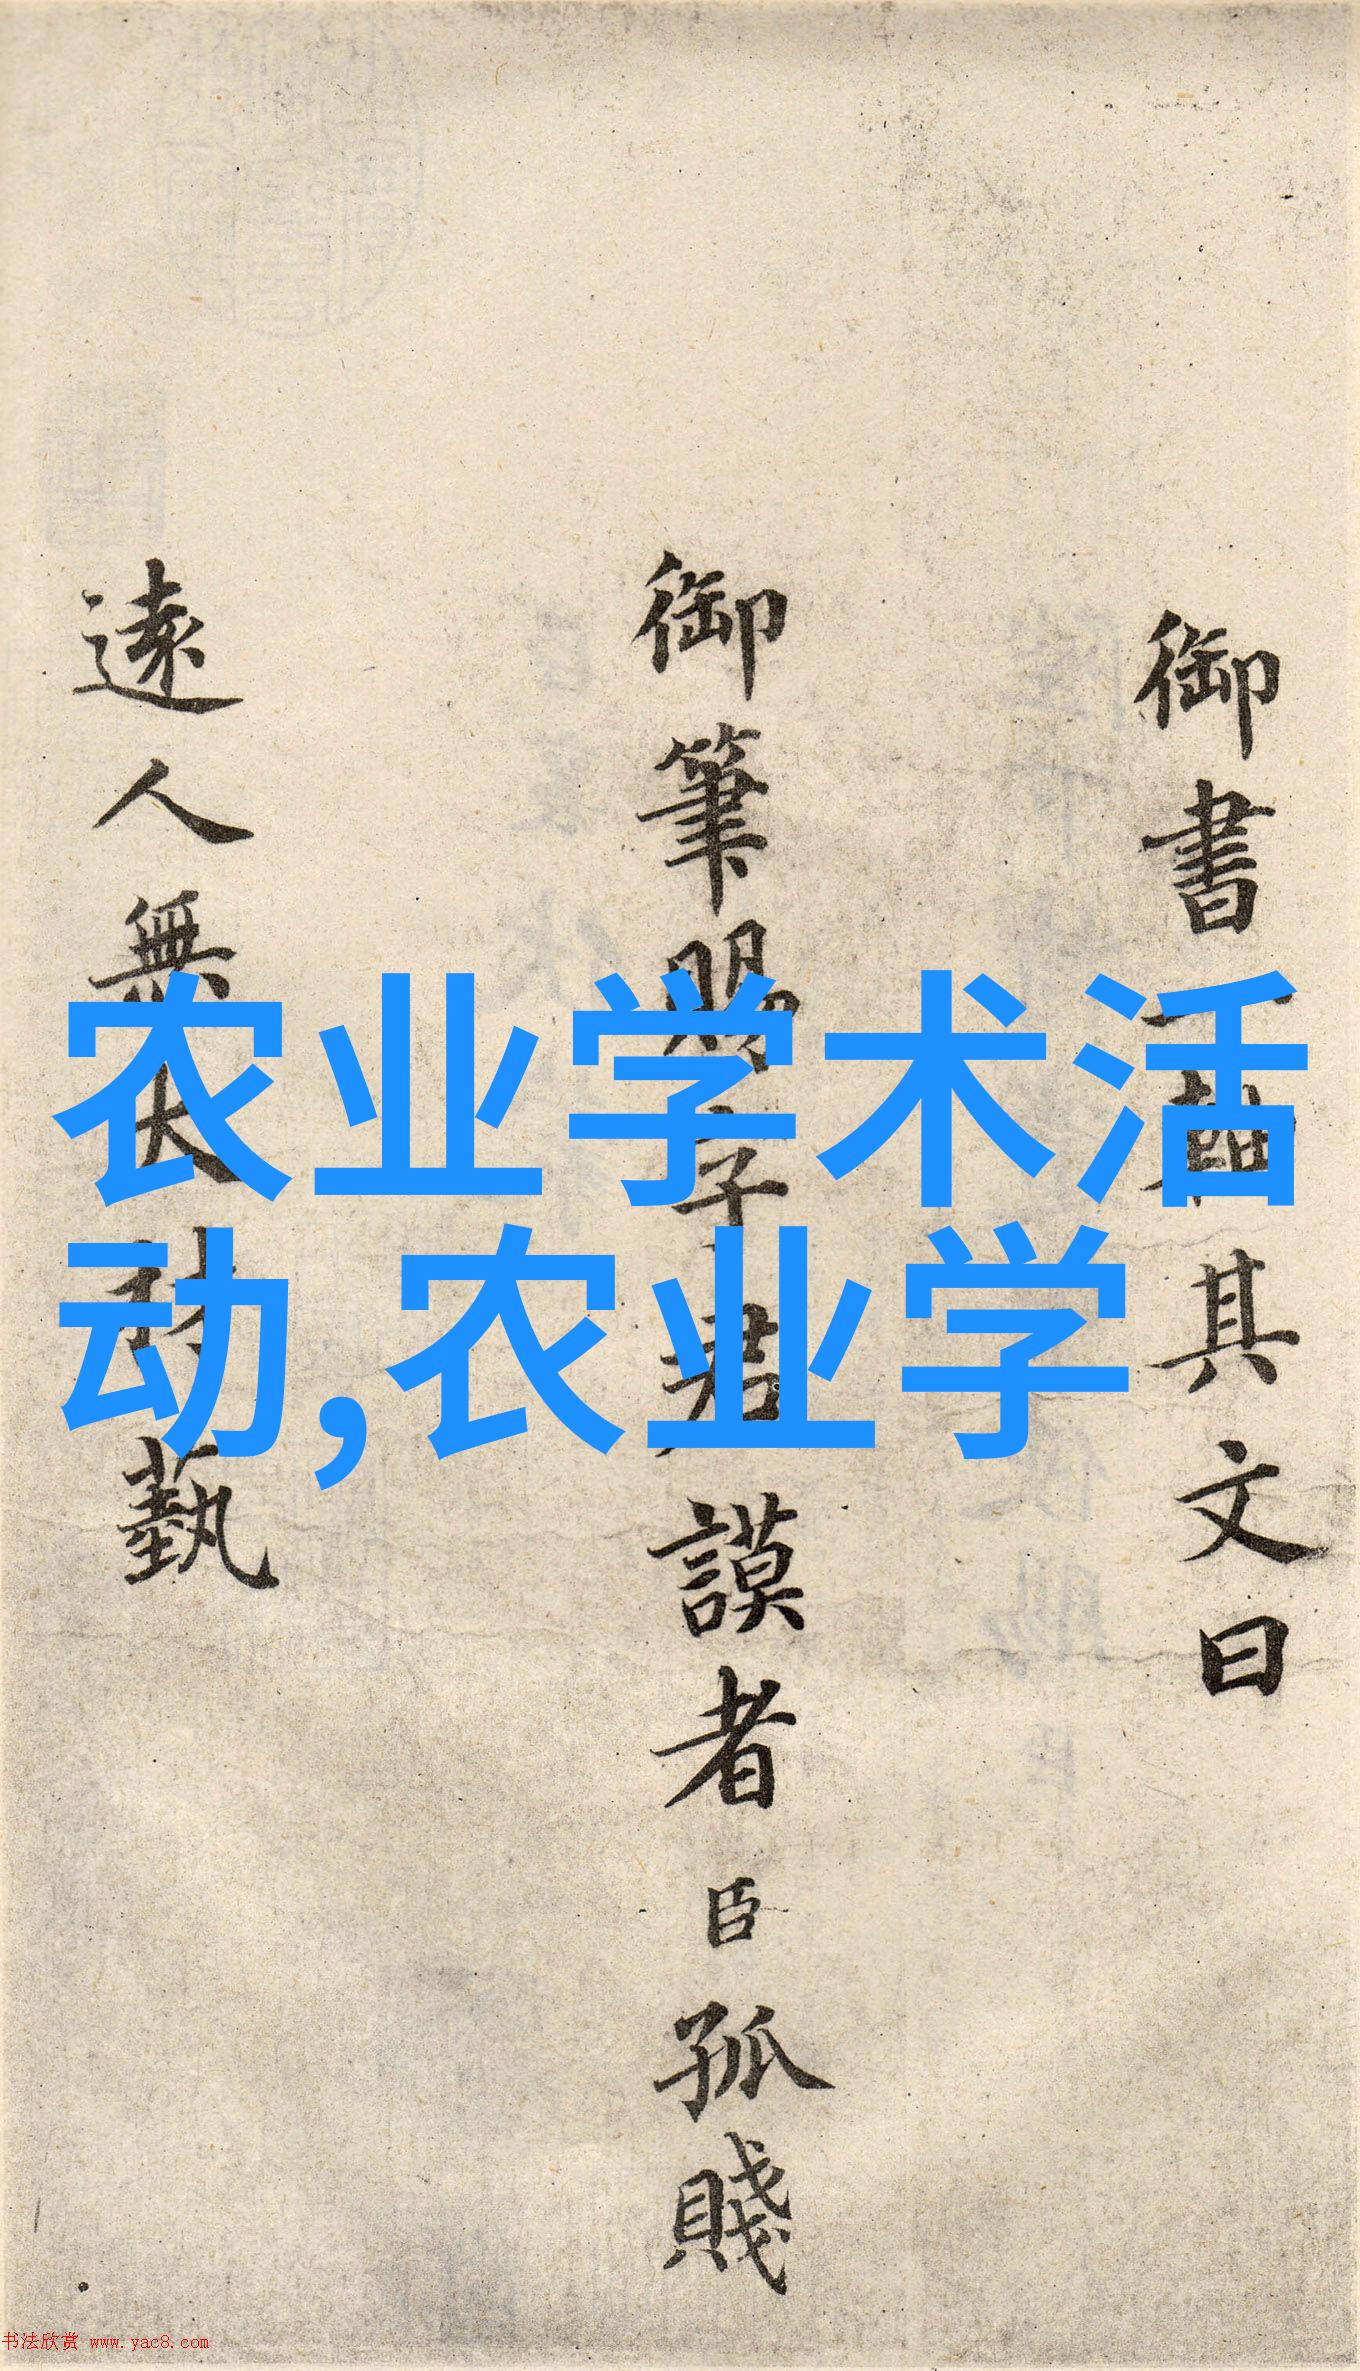 农业学术活
动,农业学
御書一軸其文曰
御筆賜字君謨者臣孤賤
遠人無大材藝
书法欣赏 www.yac8.com